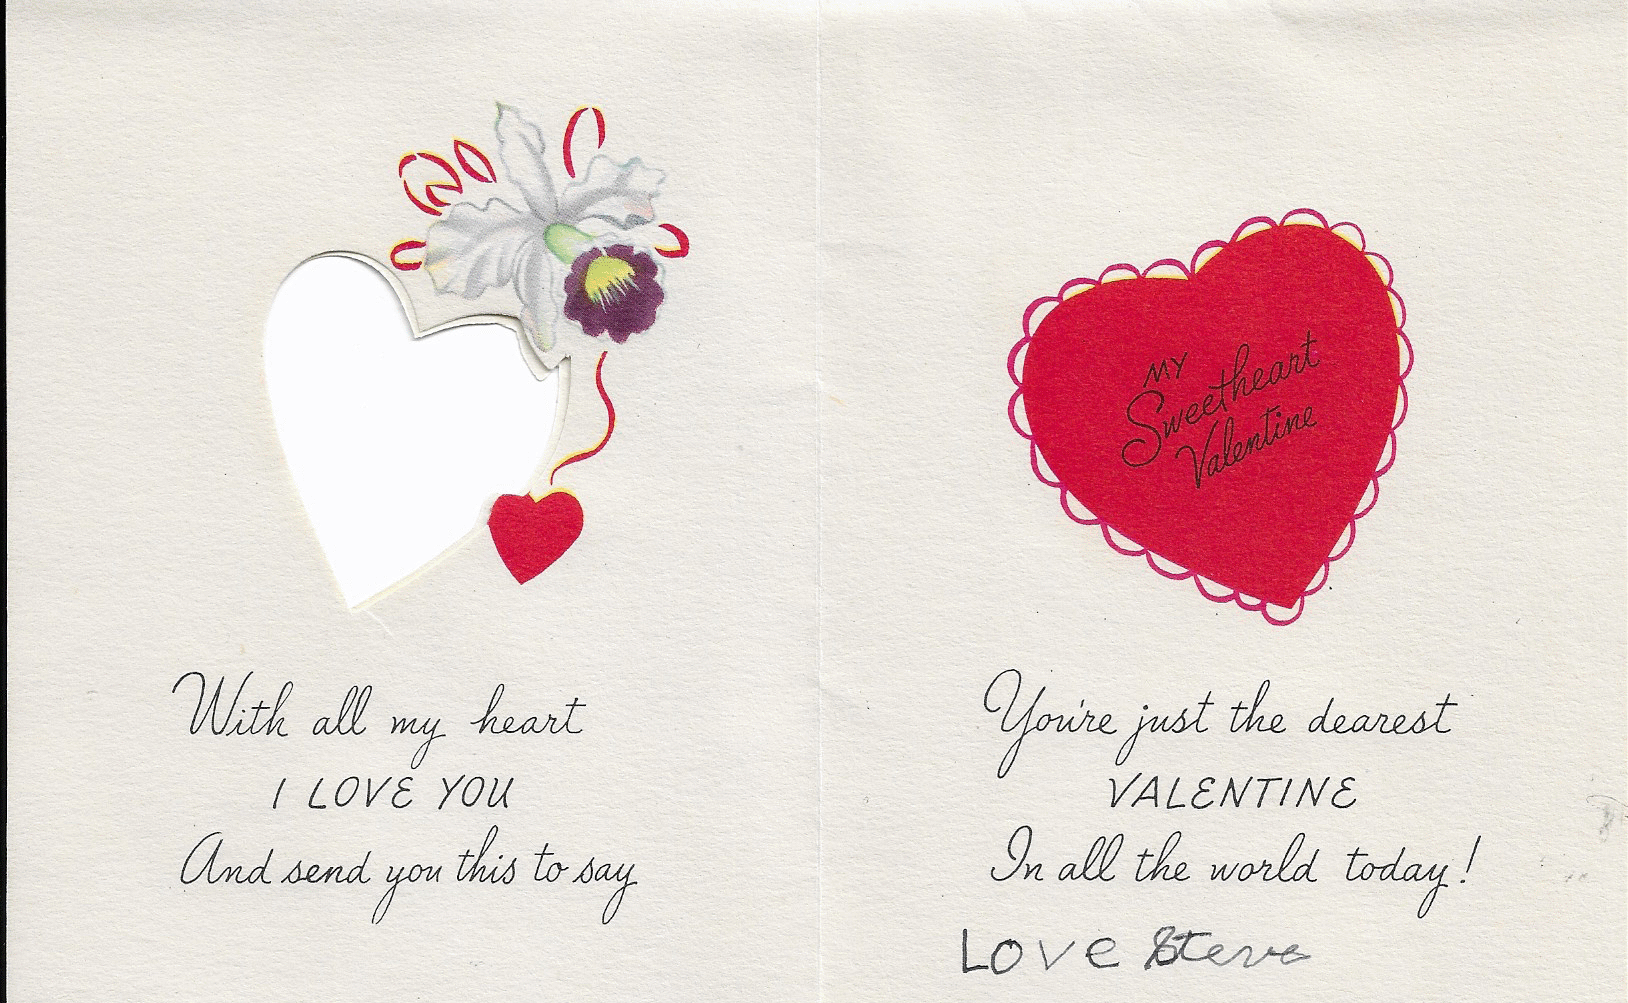 With all my heart
I LOVE YOU
And send you this to say
MY
Sweetheart
Valentine
You're just the dearest
VALENTINE
In all the world today!
LOVE Steve